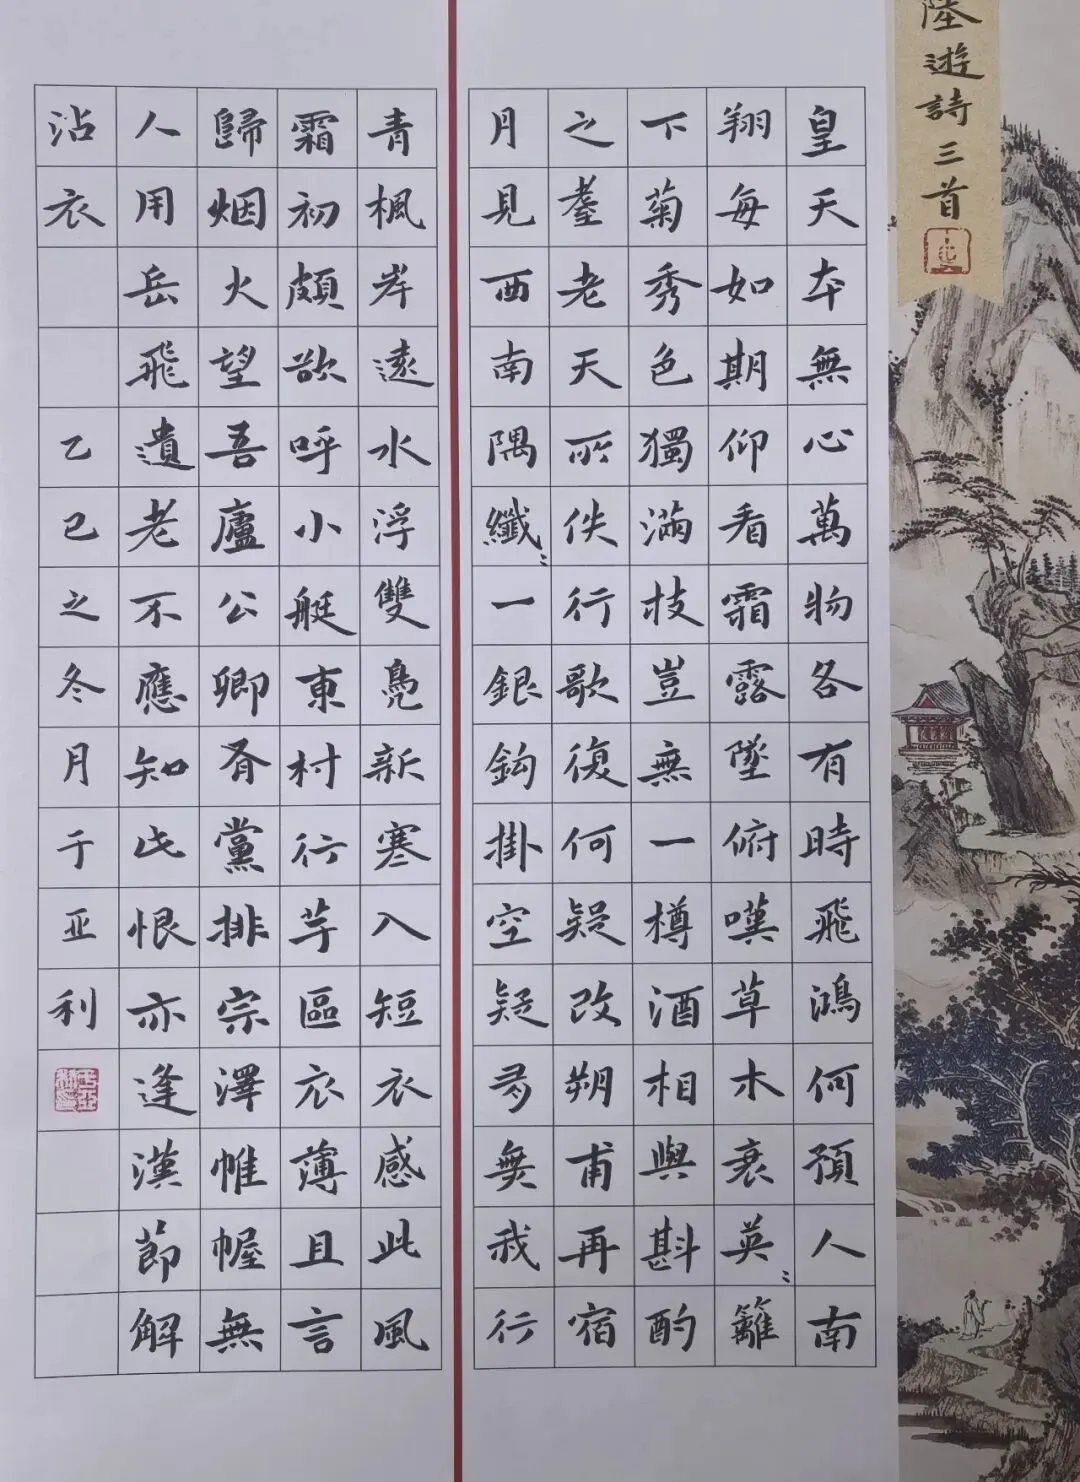 陸遊詩三首
皇天本無心萬物各有時飛鴻何預人南
翔每如期仰看霜露墜俯嘆草木衰英〻籬
下菊秀色獨滿枝豈無一樽酒相與斟酌
之耋老天所佚行歌復何疑改朔甫再宿
月見西南隅纖〻一銀鈎掛空疑有無我行
青楓岸遠水浮雙鳧新寒入短衣感此風
霜初頗欲呼小艇東村行芋區衣薄且言
歸烟火望吾廬公卿有黨排宗澤帷幄無
人用岳飛遺老不應知此恨亦逢漢節解
沾衣 乙巳之冬月于亚利